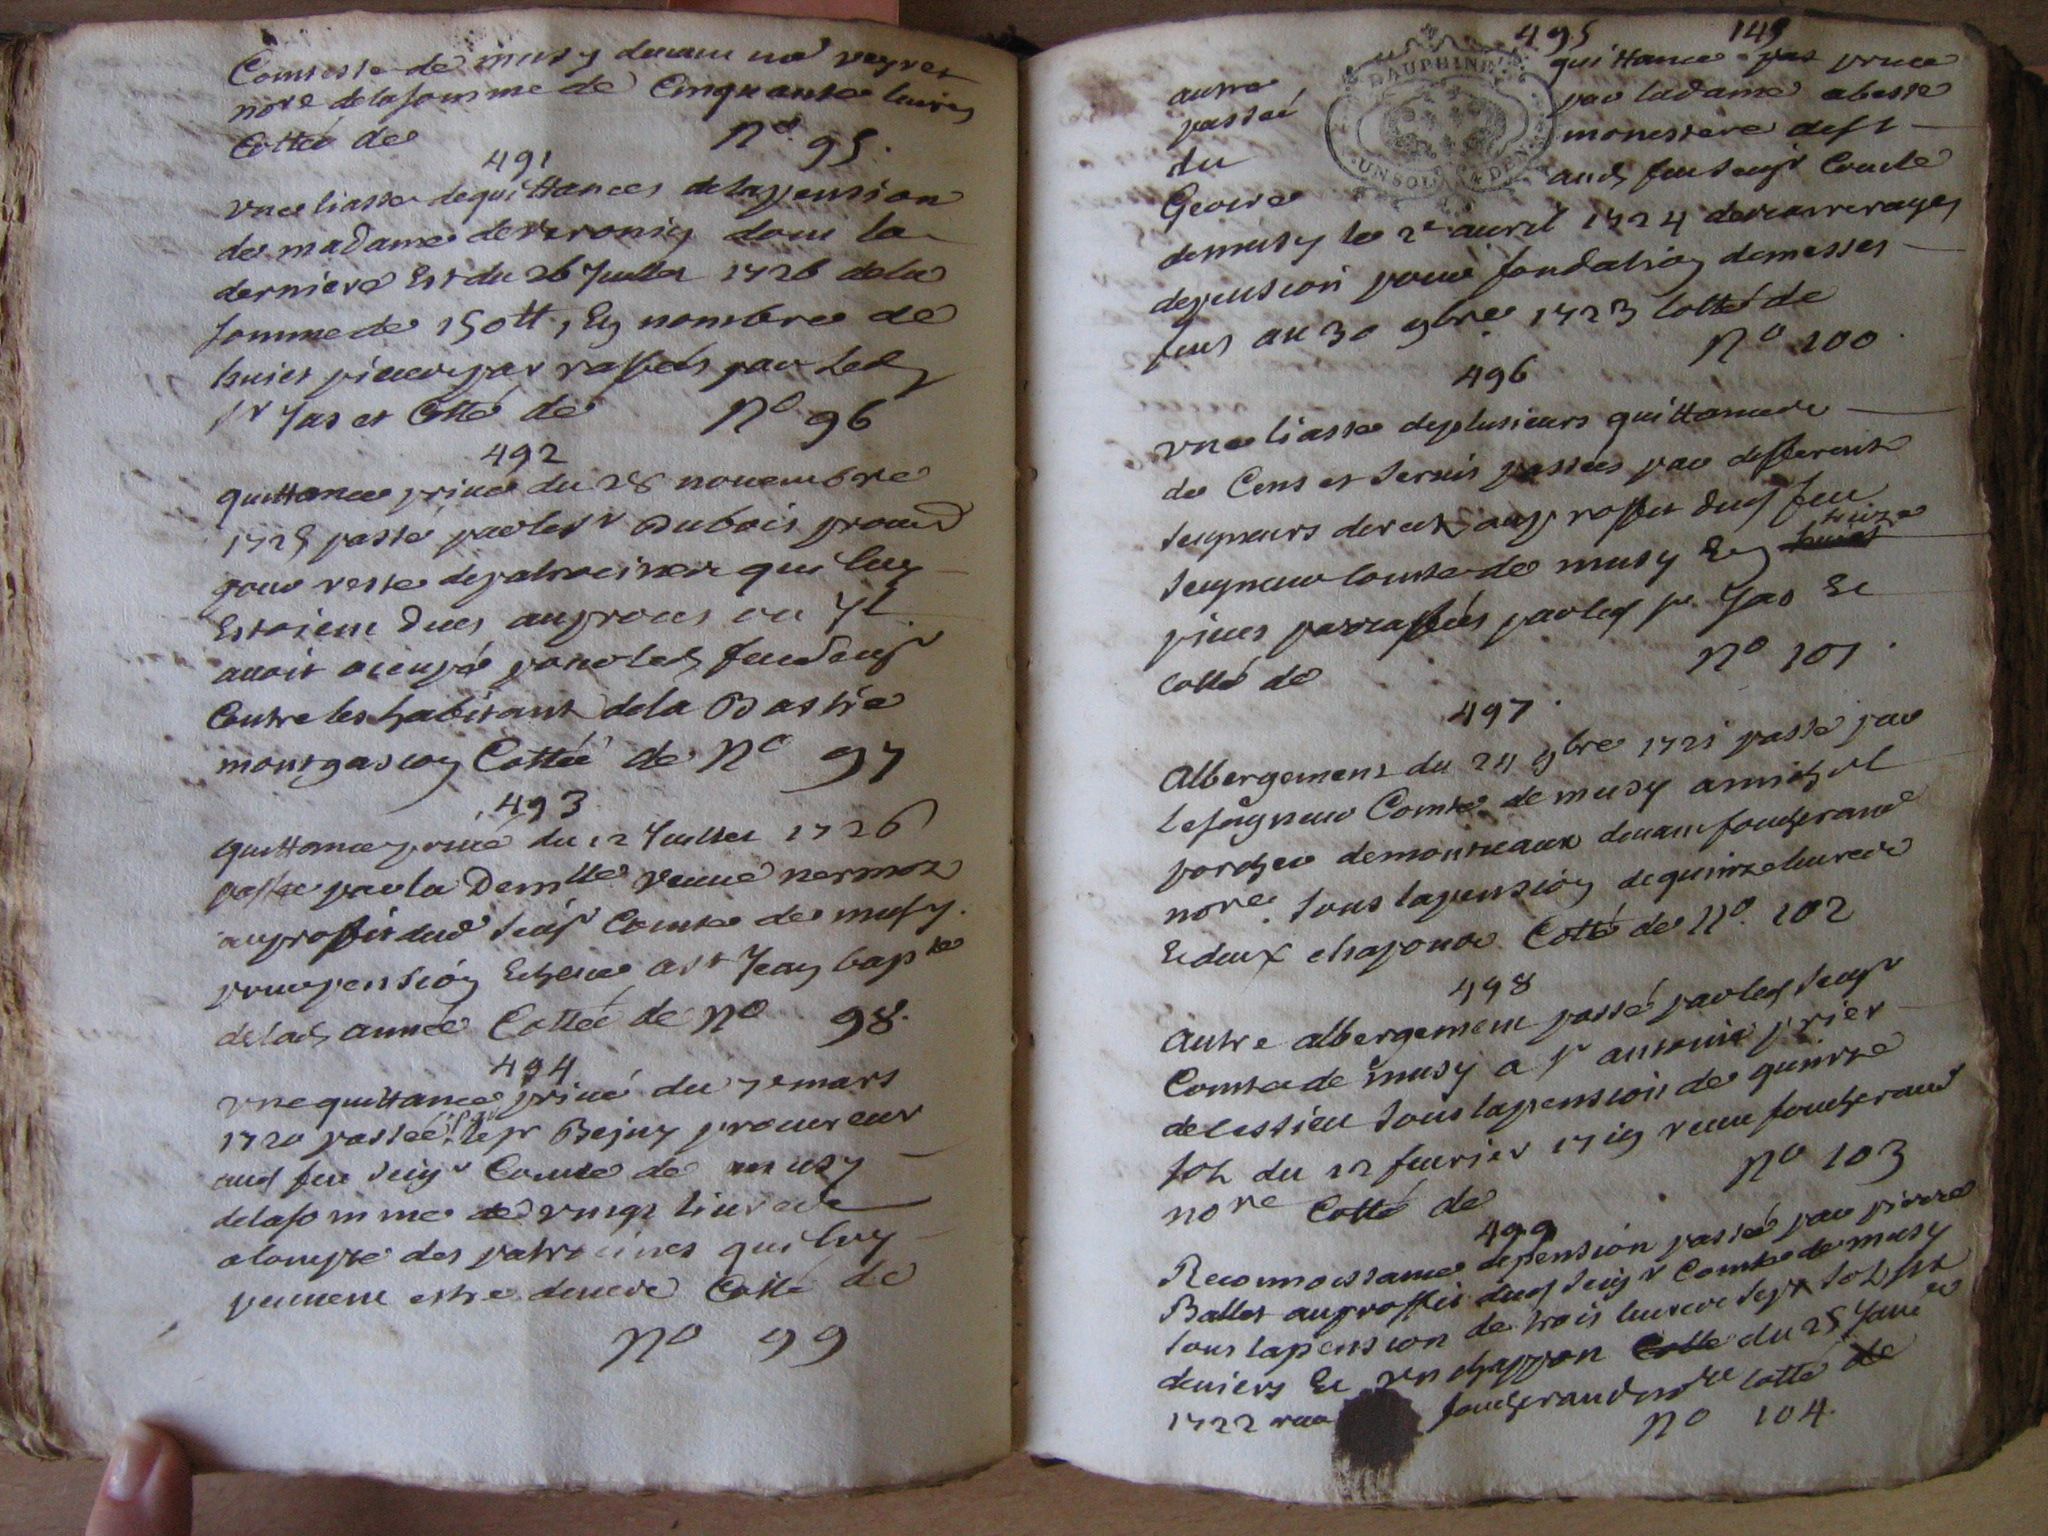 Comtesse de musy devant me veyret
nore de la somme de Cinquante livres
Cotté de No 95.
491
une liasse de quittances de la pension
de madame de veronin dont la
derniere Est du 26 Juillet 1726 de la
somme de 150tt, En nombre de
huict pieces par raffées par led
sr Jas et Cotté de No 96
492
quittance privé du 28 novembre
1725 passé par le sr Dubois procud
pour reste de patrocines qui luy
Estoient dues au proces ou Jl
avoit occupé pour led feu seigr
Contre les habitant de la Bastie
montgascon Cottée de No 97
493
quittance privé du 12 Juillet 1726
passé par la Demlle veuve nermoz
au proffit dud seigr Comte de musy.
pour pension Echeue a st Jean bapte
de lad année Cottée de No 98.
494
une quittance privé du 7e mars
1720 passée le sr Bejuy procureur
aud feu seigr Comte de musy
de la somme de vingt livres
a compte des patrocines qui luy
peuvent estre deues Cotté de
No 99
495 149
autre quittance privée
passée par la dame abesse
du monestere de st
Geoire aud feu seigr Comte
de musy le 2e avril 1724 des arrerages
de pension pour fondation de messes
jus au 30 9bre 1723 Cotté de
No 100.
DAUPHINE
UN SOL 4 DEN
496
une liasse de plusieurs quittances
de Cens et servis passées par differents
seigneurs directs au proffit dud feu
seigneur Comte de musy En treize
pieces parraffées par led sr Jas Et
cotté de No 101.
497.
Albergement du 24 9bre 1721 passé par
le seigneur Comte de musy a michel
porcher de montceaux devant foucherand
nore. sous la pension de quinze livres
Et deux chapons. Cotté de No. 102
498
autre albergement passé par led seigr
Comte de musy a sr antoine prier
de lestieu sous la pension de quinze
sols du 12 fevrier receu foucherand
nore Cotté de No 103
499
Reconnoissance de pension passée par pierre
Ballet au proffit dud seigr Comte de musy
sous la pension de trois livres sept sols six
deniers Et un chappon du 25 Janvr
1722 foucherand nore cotté de
No 104.